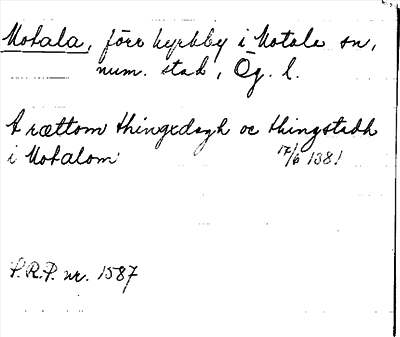 Motala, förr kyrkby i Motala sn,
num. stad, Ög. l.
A rættom thingxdagh oc thingstadh
i Motalom 17/6 1381
S.R.P. nr. 1587